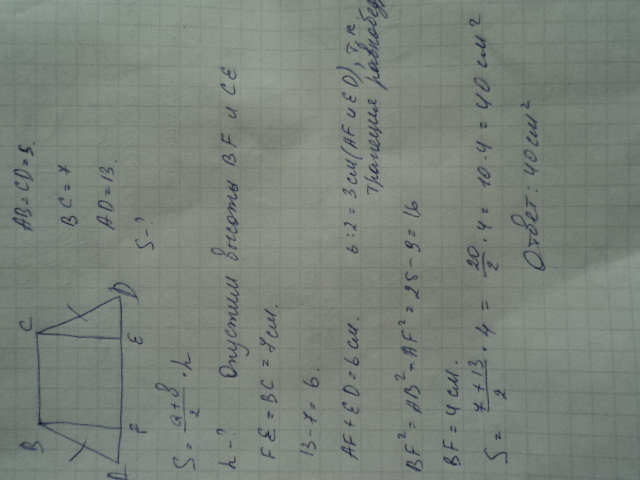 B C
A F E D
AB = CD = 5.
BC = 7
AD = 13.
S - ?
S = a+b/2 · h
h - ? Опустим высоты BF и CE
FE = BC = 7 см.
13 - 7 = 6.
AF + ED = 6 см. 6 : 2 = 3 см (AF и ED), т.к.
трапеция
BF² = AB² - AF² = 25 - 9 = 16
BF = 4 см.
S = 7+13/2 · 4 = 20/2 · 4 = 10 · 4 = 40 см²
Ответ: 40 см²